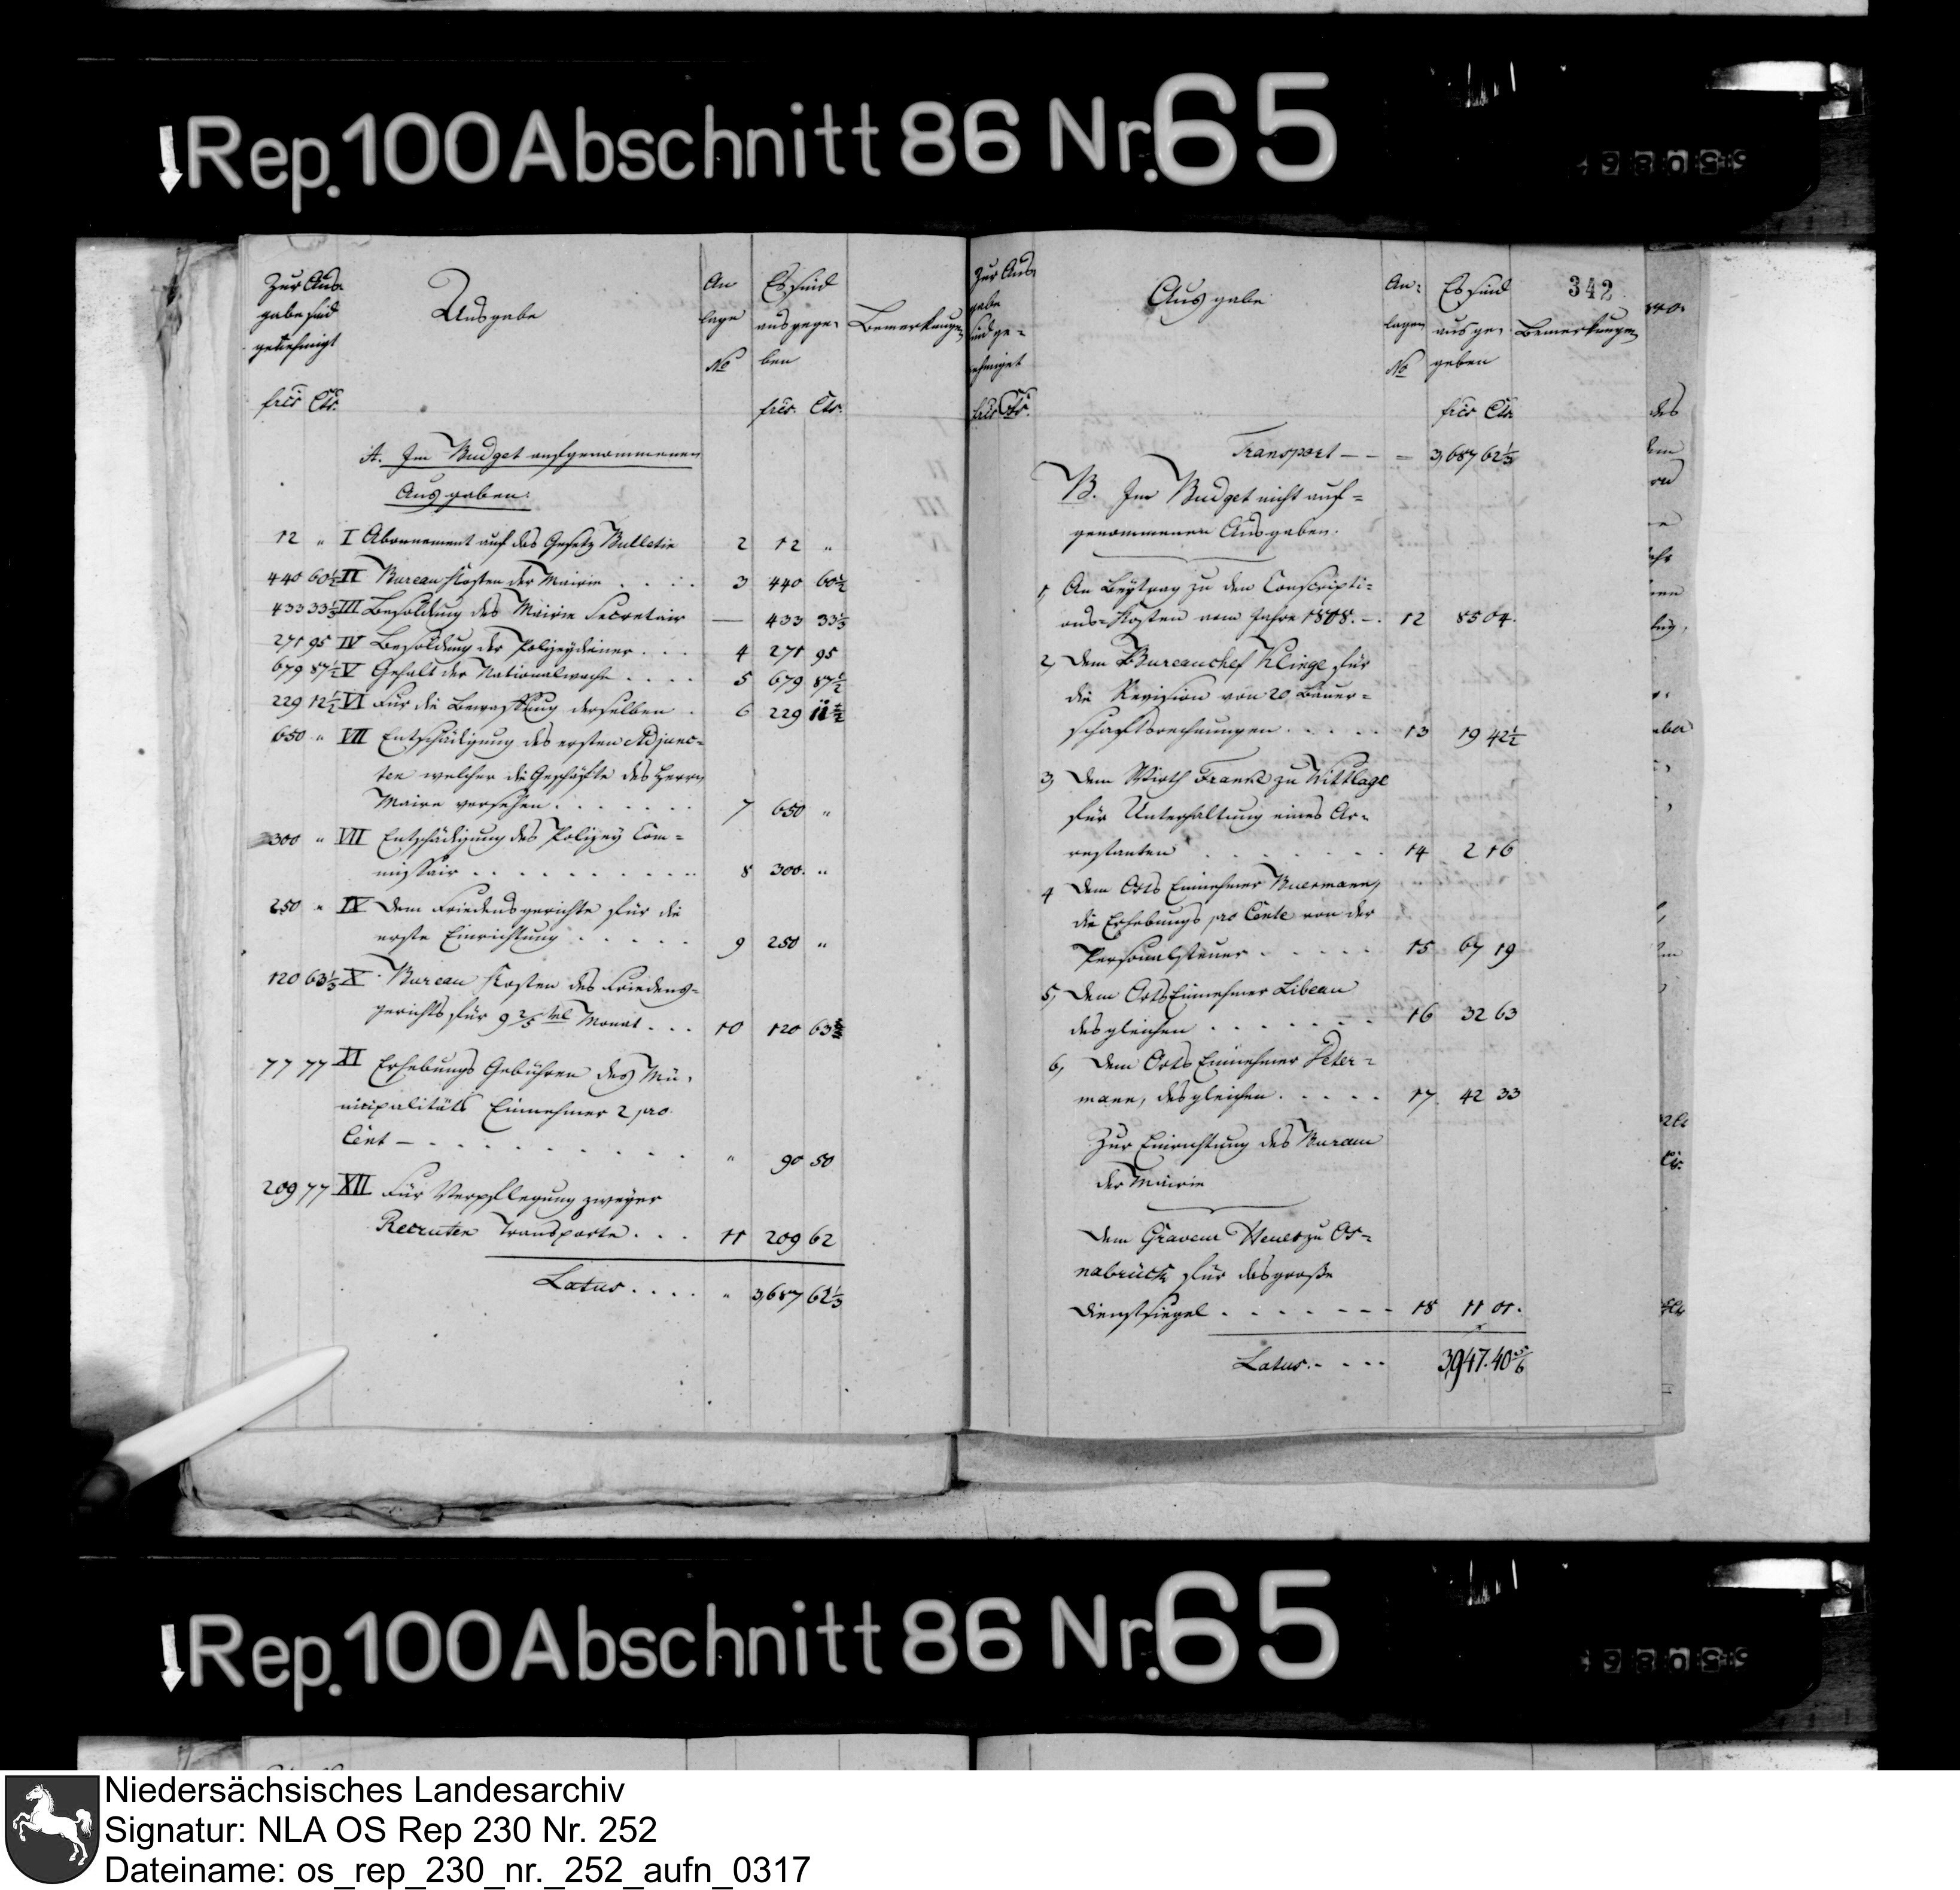 Rep. 100 Abschnitt 86 Nr. 65
Zur Aus-
gabe sind
genehmigt
frcs Cts.
Ausgabe
An
lage
No
Es sind
ausgege-
ben
frcs. Cts.
Bemerkungen
A. Im Budget aufgenommenen
Ausgaben:
12 " I Abonnement auf das Gesetz Bulletin 2 12 "
440 60½ II Bureau Kosten der Mairie . . . . 3 440 60½
433 33⅓ III Besoldung des Mairie Secretair — 433 33⅓
271 95 IV Besoldung der Polizeydiener . . . 4 271 95
679 87½ V Gehalt der Nationalwache . . . . 5 679 87½
229 12½ VI Für die Bewaffnung derselben . 6 229 11½
650 " VII Entschädigung des ersten Adjunc-
ten welcher die Geschäfte des Herrn
Maire versehen . . . . . . 7 650 "
300 " VII Entschädigung des Polizey Com-
missair . . . . . . . . . . 8 300. "
250 " IX Dem Friedensgerichte für die
erste Einrichtung . . . . . 9 250 "
120 63⅓ X Bureau Kosten des Friedens-
gerichts für 9 2/5 tel Monat . . . 10 120 63
77 77 XI Erhebungs Gebühren des Mu-
nicipalitäts Einnehmer 2 pro
Cent — . . . . . . . . . " 90 50
209 77 XII Für Verpflegung zweyer
Recruten Transporte . . . 11 209 62
Latus . . . . " 3,687 62⅓
342
Zur Aus-
gabe
sind ge-
nehmiget
frcs Cts.
Ausgabe
An-
lagen
No
Es sind
ausge-
geben
frcs Cts.
Bemerkungen
Transport — — — 3,687 62⅓
B. Im Budget nicht auf-
genommenen Ausgaben.
1, An Beytrag zu den Conscripti-
ons-Kosten vom Jahre 1808. — . 12 85 04.
2, Dem Bureauchef Klinge für
die Revision von 20 Bauer-
schaftsrechnungen . . . . . 13 19 42½
3, Dem Wirth Frank zu Wittlage
für Unterhaltung eines Ar-
restanten . . . . . . . 14 2 16
4 Dem Orts Einnehmer Buermann,
die Erhebungs pro Cente von der
Personalsteuer . . . . . 15 67 19
5, Dem Orts Einnehmer Libeau
desgleichen . . . . . . . 16 32 63
6, Dem Orts Einnehmer Peter-
mann, desgleichen . . . . . 17. 42 33
Zur Einrichtung des Bureau
der Mairie
Dem Graveur zu Os-
nabrück für das große
Dienstsiegel . . . . . . . 18 11 01.
Latus. . . . . 3,947. 40 5/6
Rep. 100 Abschnitt 86 Nr. 65
Niedersächsisches Landesarchiv
Signatur: NLA OS Rep 230 Nr. 252
Dateiname: os_rep_230_nr._252_aufn_0317